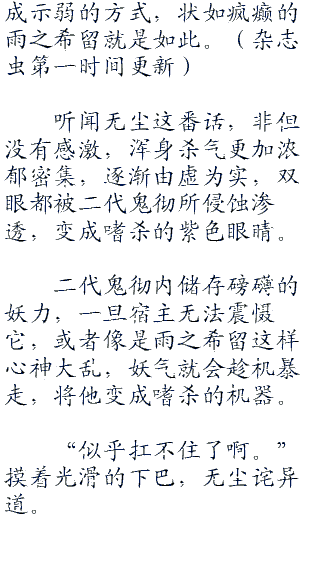 成示弱的方式，状如疯癫的
雨之希留就是如此。（杂志
虫第一时间更新）
听闻无尘这番话，非但
没有感激，浑身杀气更加浓
郁密集，逐渐由虚为实，双
眼都被二代鬼彻所侵蚀渗
透，变成嗜杀的紫色眼睛。
二代鬼彻内储存磅礴的
妖力，一旦宿主无法震慑
它，或者像是雨之希留这样
心神大乱，妖气就会趁机暴
走，将他变成嗜杀的机器。
“似乎扛不住了啊。”
摸着光滑的下巴，无尘诧异
道。